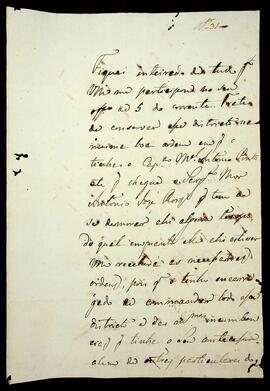 Nº 31
Fiquei inteirado de tudo q
Vm me participou no seu
offº de 5 do corrente. Trate
de conservar esse districto na
mesma boa ordem em q o
tinha o Capᵐ Mᵉˡ Antonio
até q chegue o Sargᵗᵒ Mor
Antonio Joze Roiz q tem de
se demorar ahi algum tempo,
do qual emquanto ahi estiver
Vm receberá as necessarias
ordens; pois q o tenho encarre
gado de commandar todo esse
districto e das mᵐᵃˢ incumben
cias q tinha o seu antecessor,
alem de outras particulares do